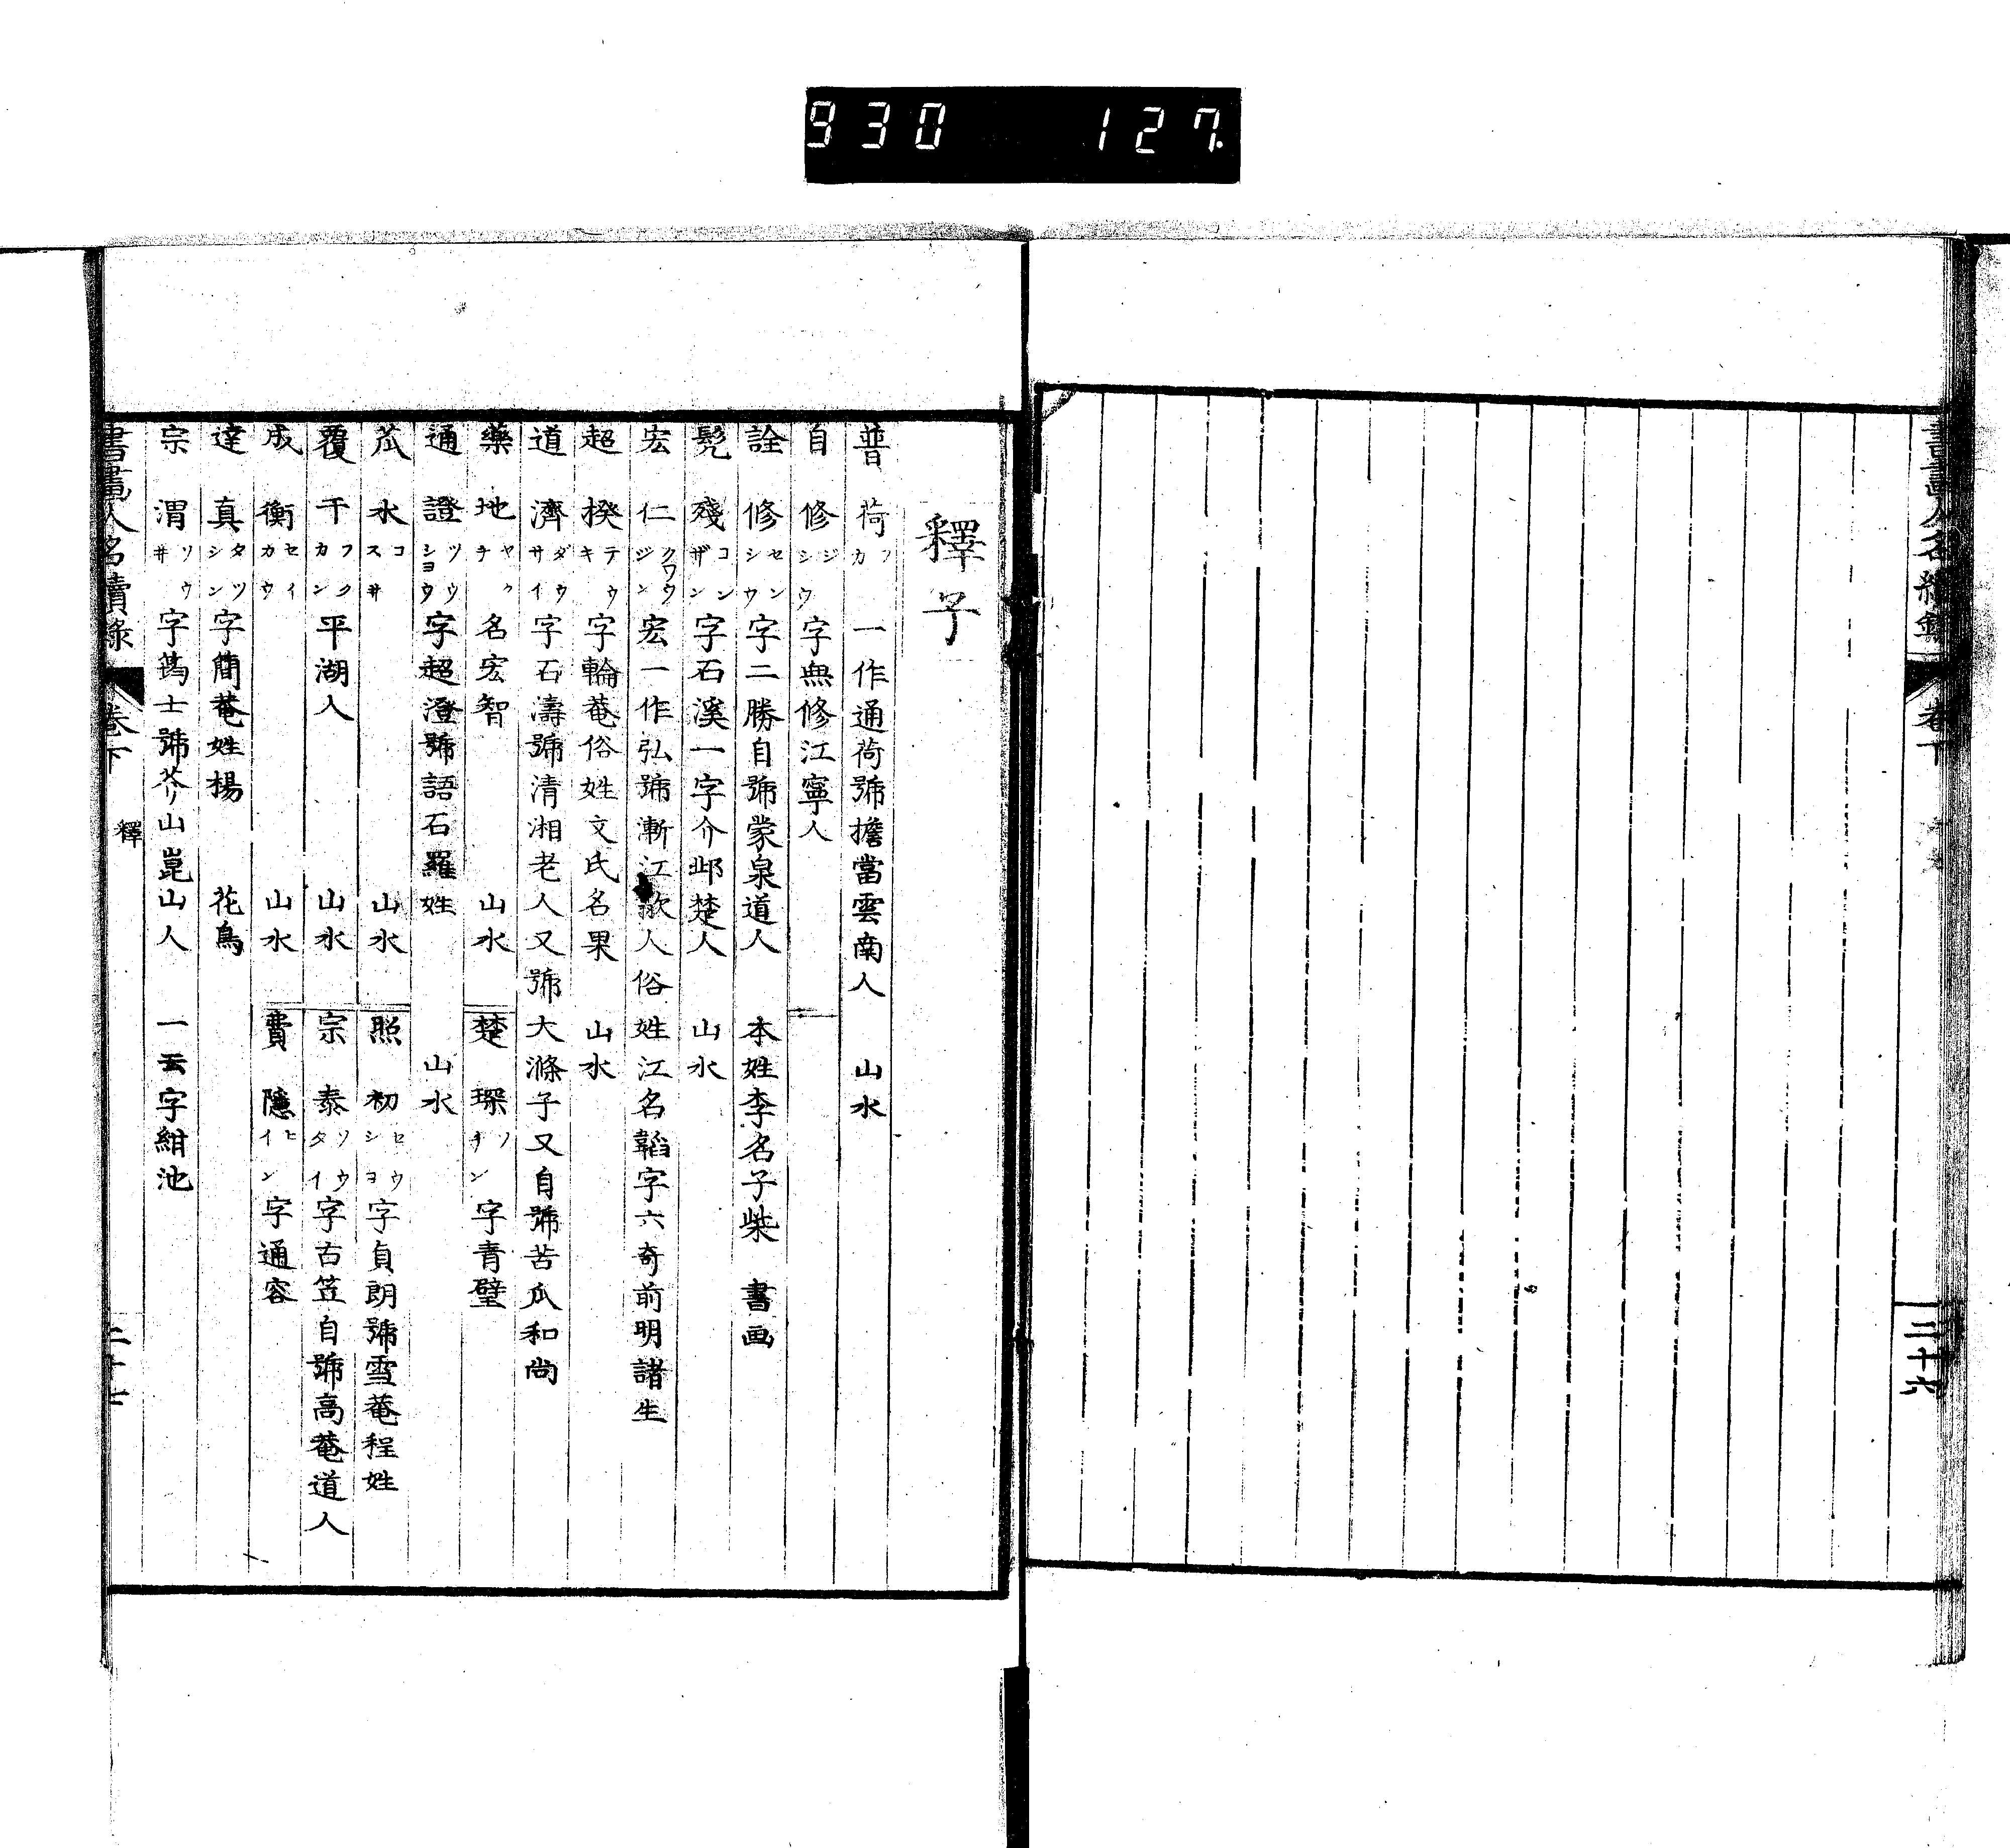 930 127.
書畫人名續錄 卷下 二十六
釋子
普荷 フカ 一作通荷號擔當雲南人 山水
自修 ジシウ 字無修江寧人
詮修 センシウ 字二勝自號蒙泉道人 本姓李名子柴 書画
髠殘 コンザン 字石溪一字介邱楚人 山水
宏仁 クワウジン 宏一作弘號漸江歙人俗姓江名韜字六奇前明諸生
超揆 テウキ 字輪菴俗姓文氏名果 山水
道濟 ダウサイ 字石濤號清湘老人又號大滌子又自號苦瓜和尚
藥地 ヤクチ 名宏智 山水 楚琛 ソチン 字青璧
通證 ツウシヨウ 字超澄號語石羅姓 山水
苽水 コスヰ 山水 照初 セウシヨ 字貞朗號雪菴程姓
覆千 フクカン 平湖人 山水 宗泰 ソウタイ 字古笠自號高菴道人
成衡 セイカウ 山水 費隱 ヒイン 字通容
達真 タツシン 字簡菴姓楊 花鳥
宗渭 ソウヰ 字蒍士號芥山崑山人 一云字紺池
書畫人名續錄 卷下 釋 二十七